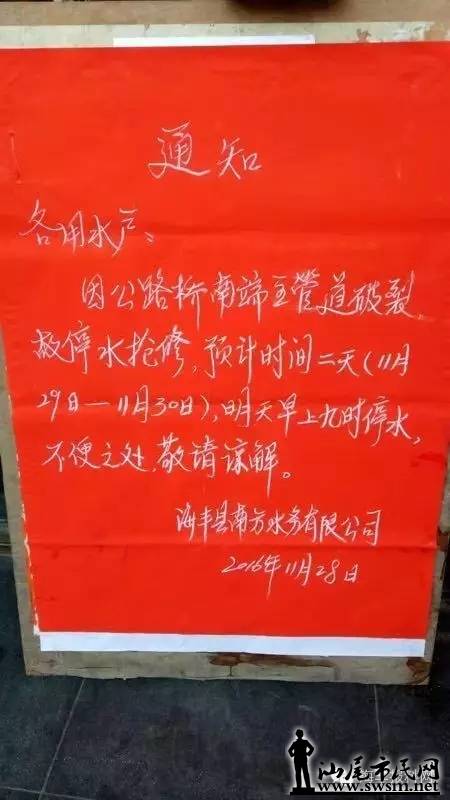 通知
各用水户：
因公路桥南端主管道破裂，
故停水抢修，预计时间二天（11月
29日—11月30日），明天早上九时停水，
不便之处，敬请谅解。
海丰县南方水务有限公司
2016年11月28日
汕尾市民网
www.swsm.net